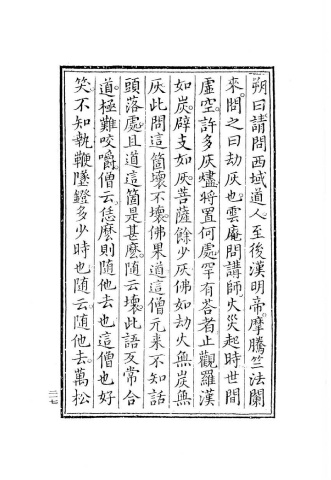 朔曰。請問西域道人。至後漢明帝。摩騰竺法蘭
來。問之曰。劫灰也。雲庵問講師。火災起時。世間
虛空。許多灰燼將置何處。罕有荅者。止觀羅漢
如炭。辟支如灰。菩薩餘少灰。佛如劫火無炭無
灰。此問這箇壞不壞。佛果道。這僧元來不知話
頭落處。且道這箇是甚麼。隨云壞。此語反常合
道。極難咬嚼。僧云恁麼則隨他去也。這僧也好
笑。不知執鞭墜鐙多少時也。隨云隨他去。萬松
二一七